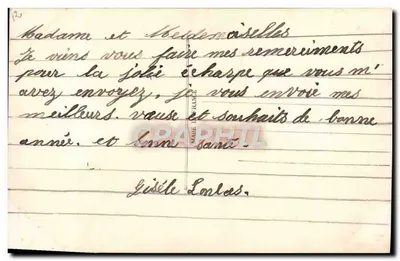 Madame et Mesdemoiselles
Je viens vous faire mes remerciments
pour la jolie écharpe que vous m'
avez envoyez. je vous envoie mes
meilleurs. vœuse et souhaits de bonne
année. et bonne santé.
Gisèle